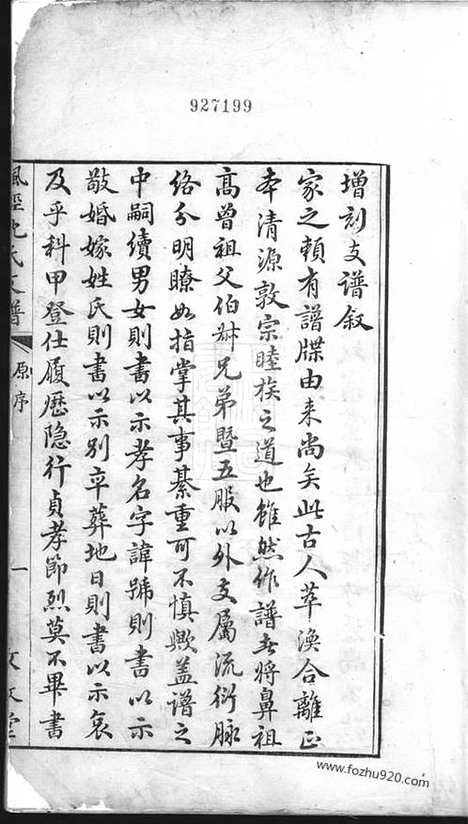 927199
增刻支譜叙
家之賴有譜牒由来尚矣此古人萃渙合離正
本清源敦宗睦族之道也雖然作譜者将鼻祖
高曽祖父伯叔兄弟暨五服以外支属流衍脉
絡分明瞭如指掌其事綦重可不慎歟盖譜之
中嗣續男女則書以示孝名字諱號則書以示
敬婚嫁姓氏則書以示别卒葬地日則書以示哀
及乎科甲登仕履歷隐行貞孝節烈莫不畢書
原序
一
www.fozhu920.com